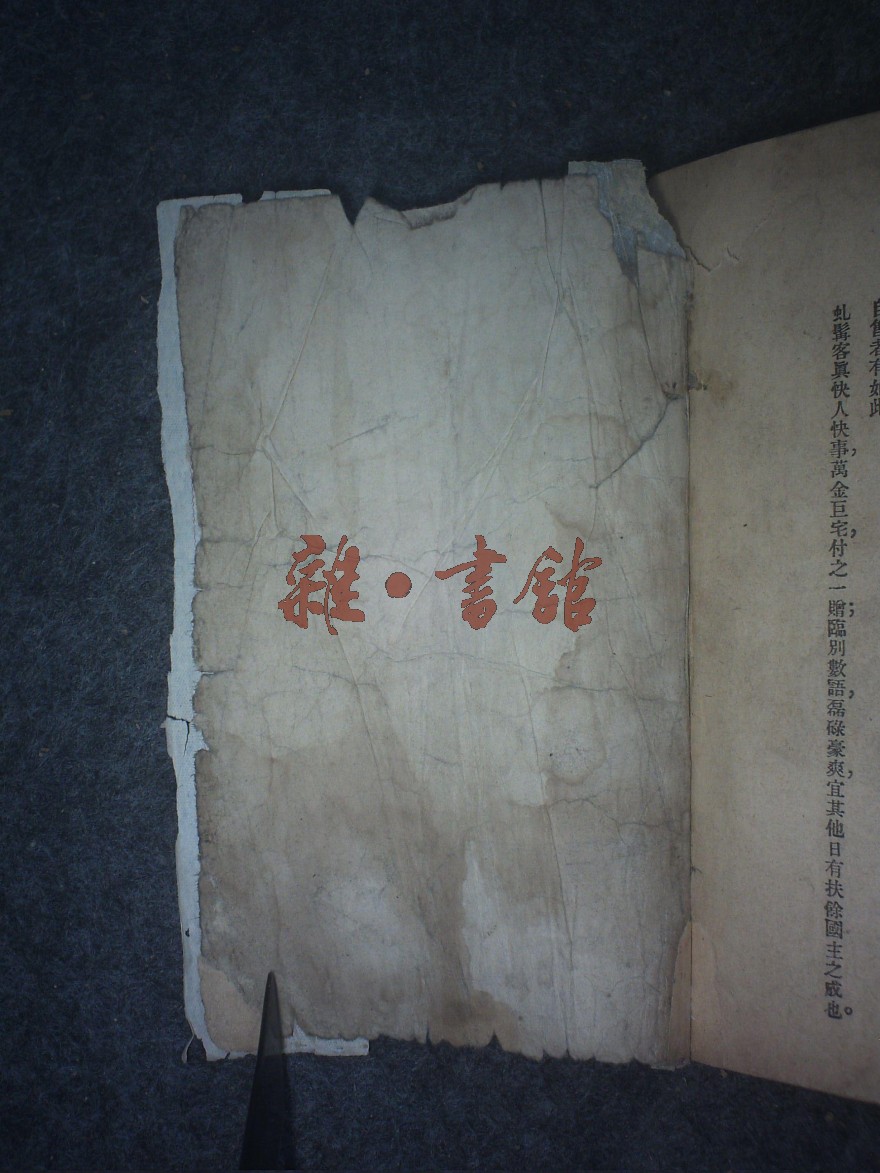 自售者有如此
虬髯客眞快人快事，萬金巨宅付之一贈；臨別數語，磊碌豪爽，宜其他日有扶餘國主之威也。
雜·書館